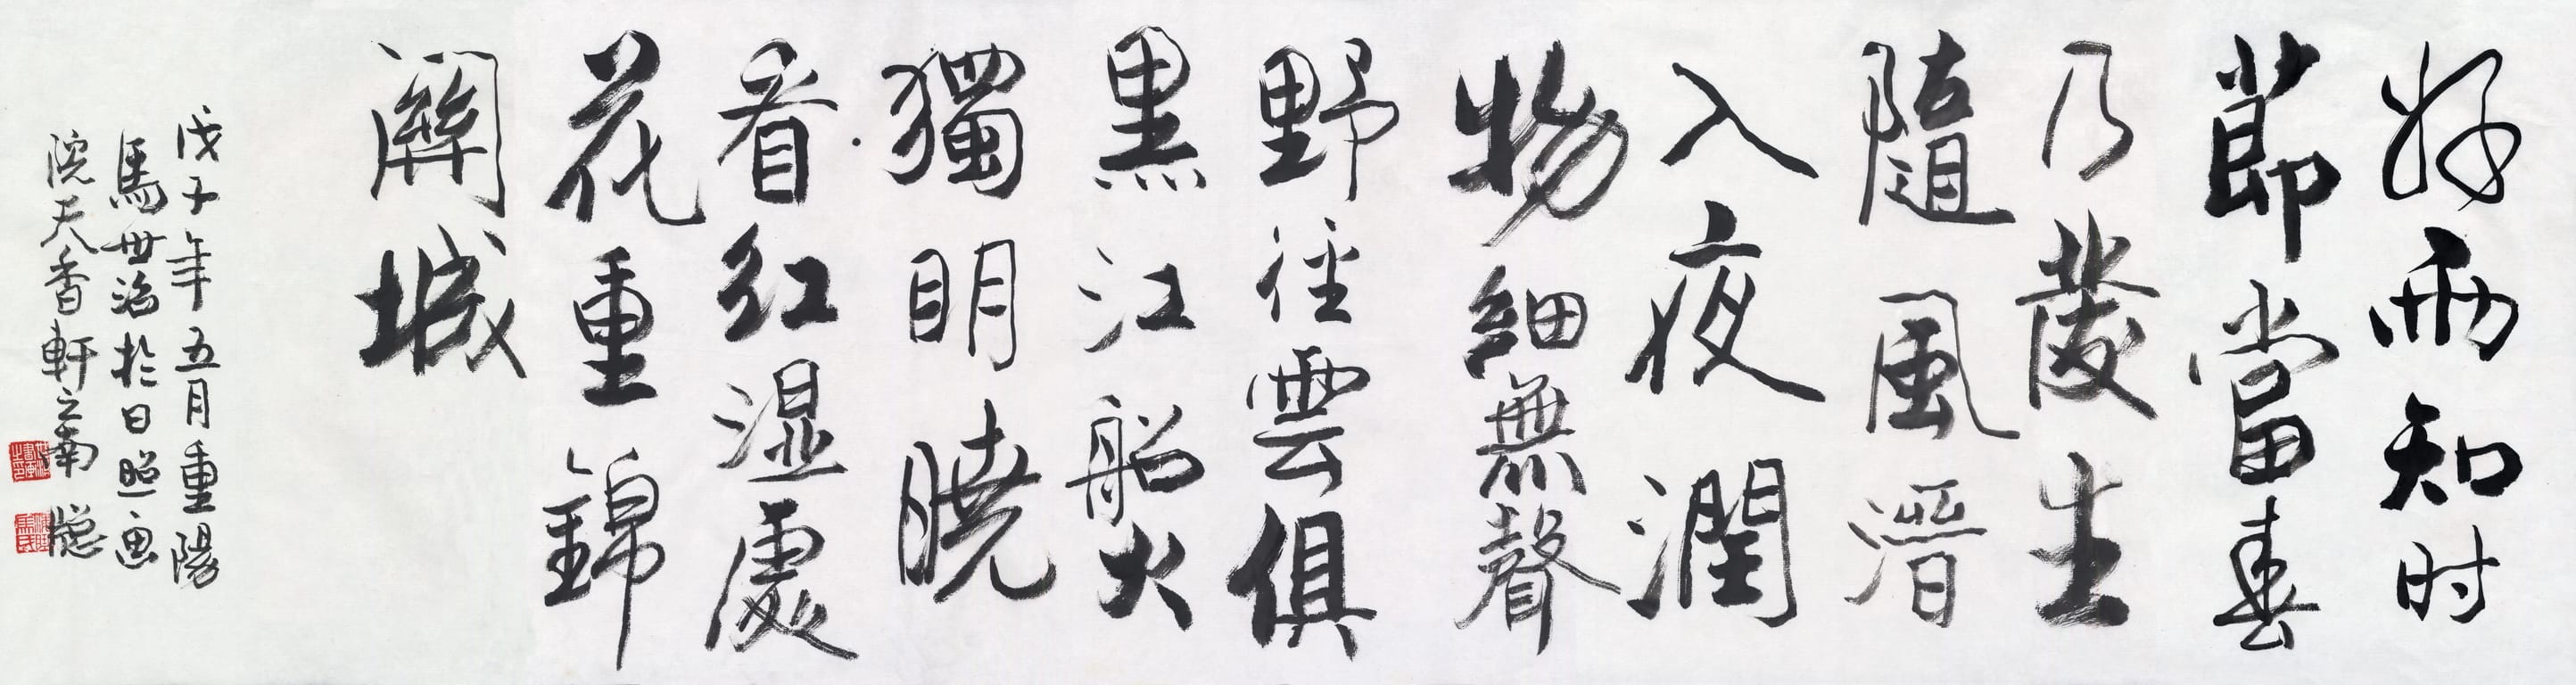 好雨知时
節當春
乃發生
隨風潛
入夜潤
物細無聲
野徑雲俱
黑江船火
獨明曉
看红濕處
花重錦
關城
戊子年五月重陽
馬世治於日照画
院天香軒之南牕